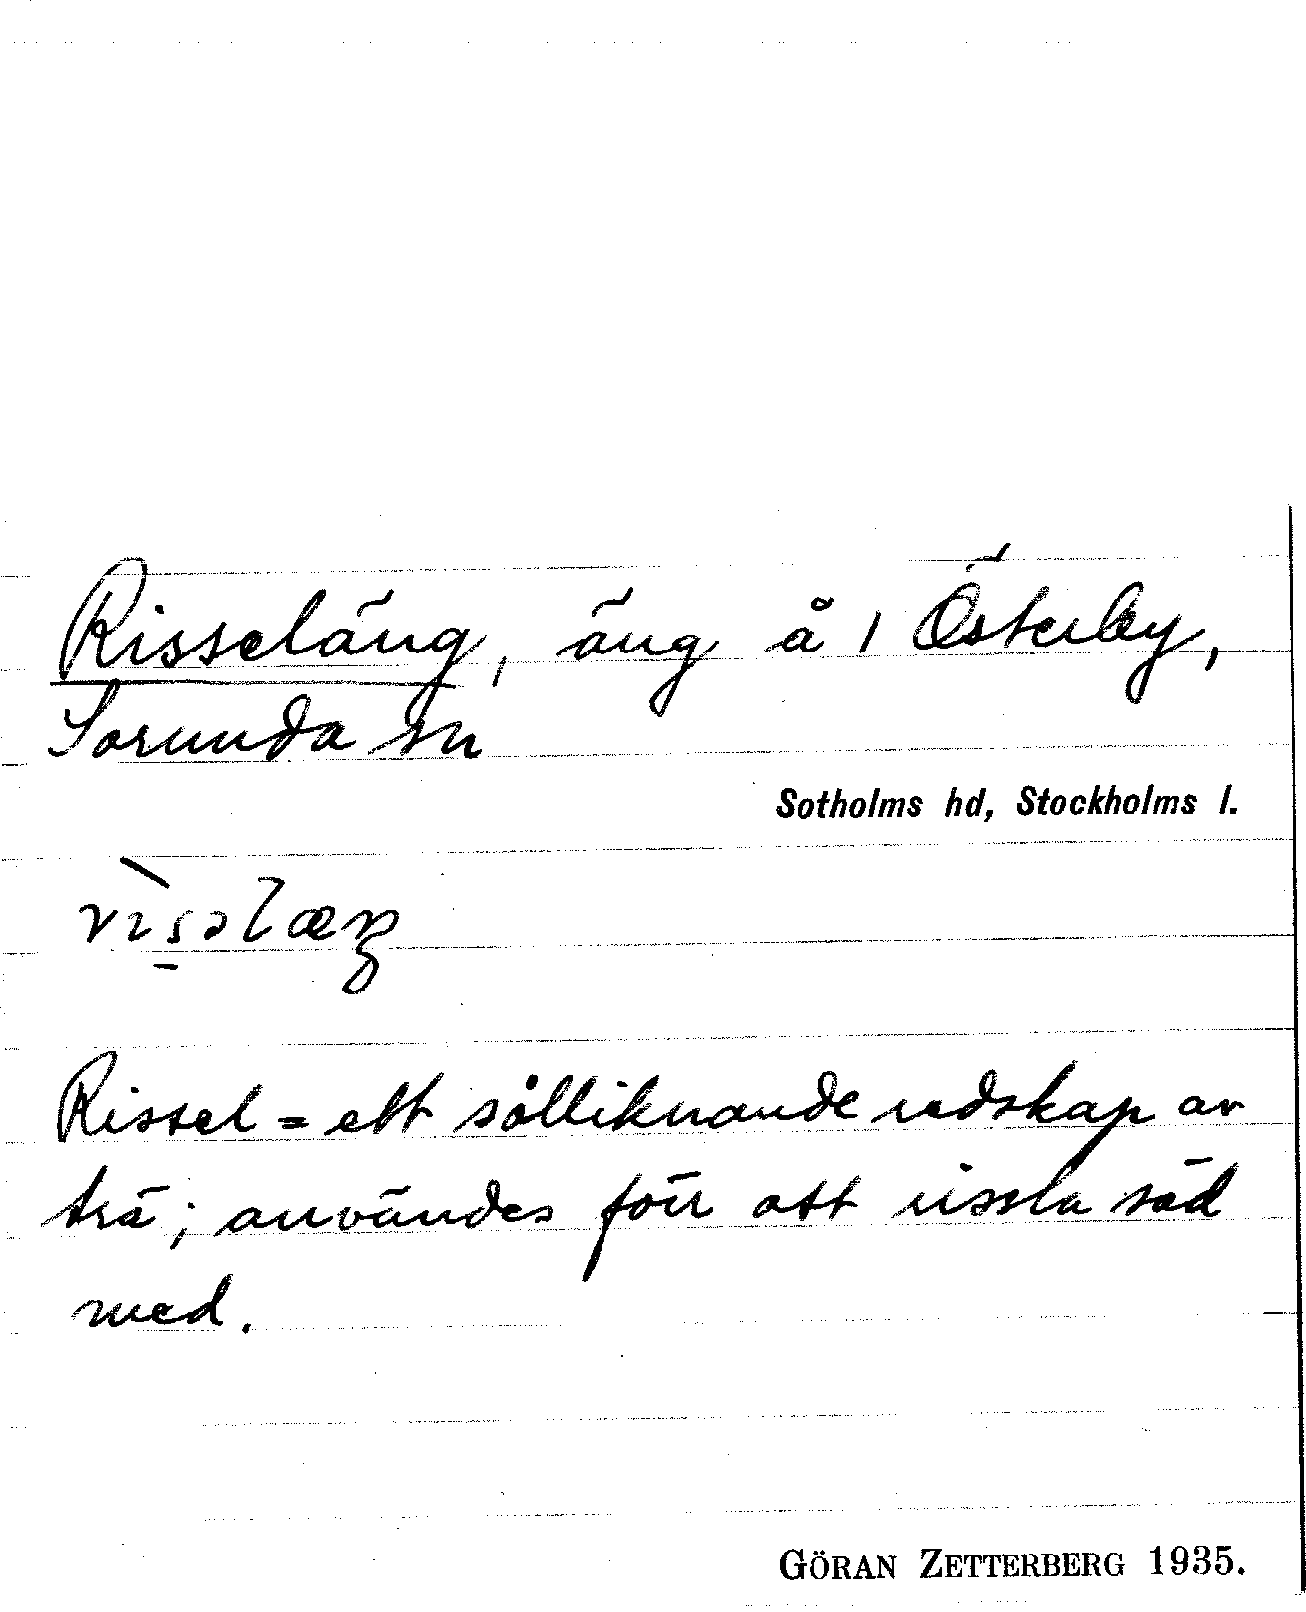 Risseläng, äng å 1 Österby,
Sorunda sn
Sotholms hd, Stockholms l.
Rissel = ett sålliknande redskap av
trä; användes för att rissla säd
med.
GÖRAN ZETTERBERG 1935.